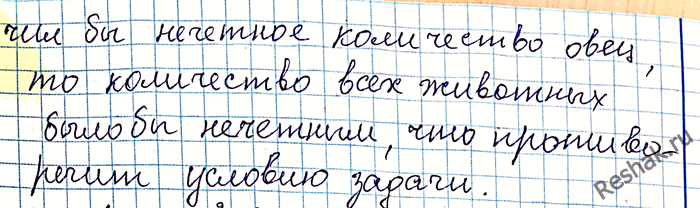 чил бы нечетное количество овец,
то количество всех животных
было бы нечетным, что противо-
речит условию задачи.
Reshak.ru